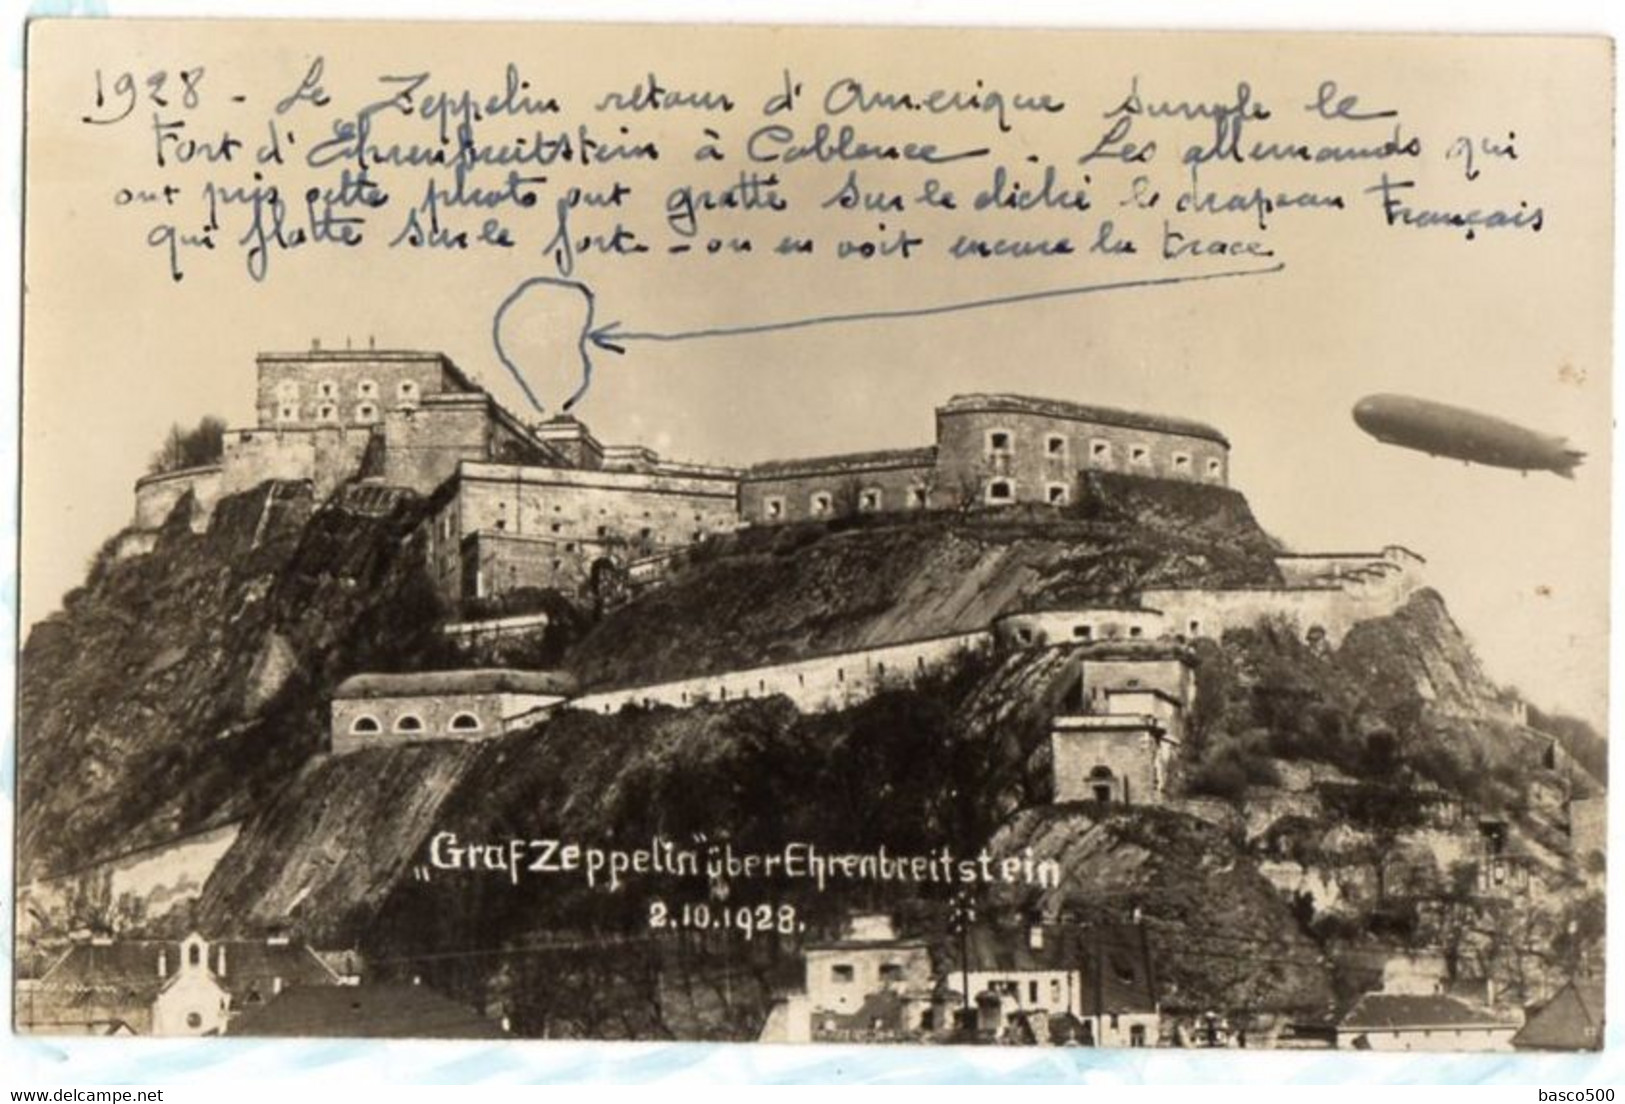 1928 - Le Zeppelin retour d'Amerique survole le
Fort d'Ehrenbreitstein à Coblence - Les allemands qui
ont pris cette photo ont gratté sur le cliché le drapeau Français
qui flotte sur le fort - on en voit encore la trace
„Graf Zeppelin" über Ehrenbreitstein
2.10.1928.
delcampe.net
basco500